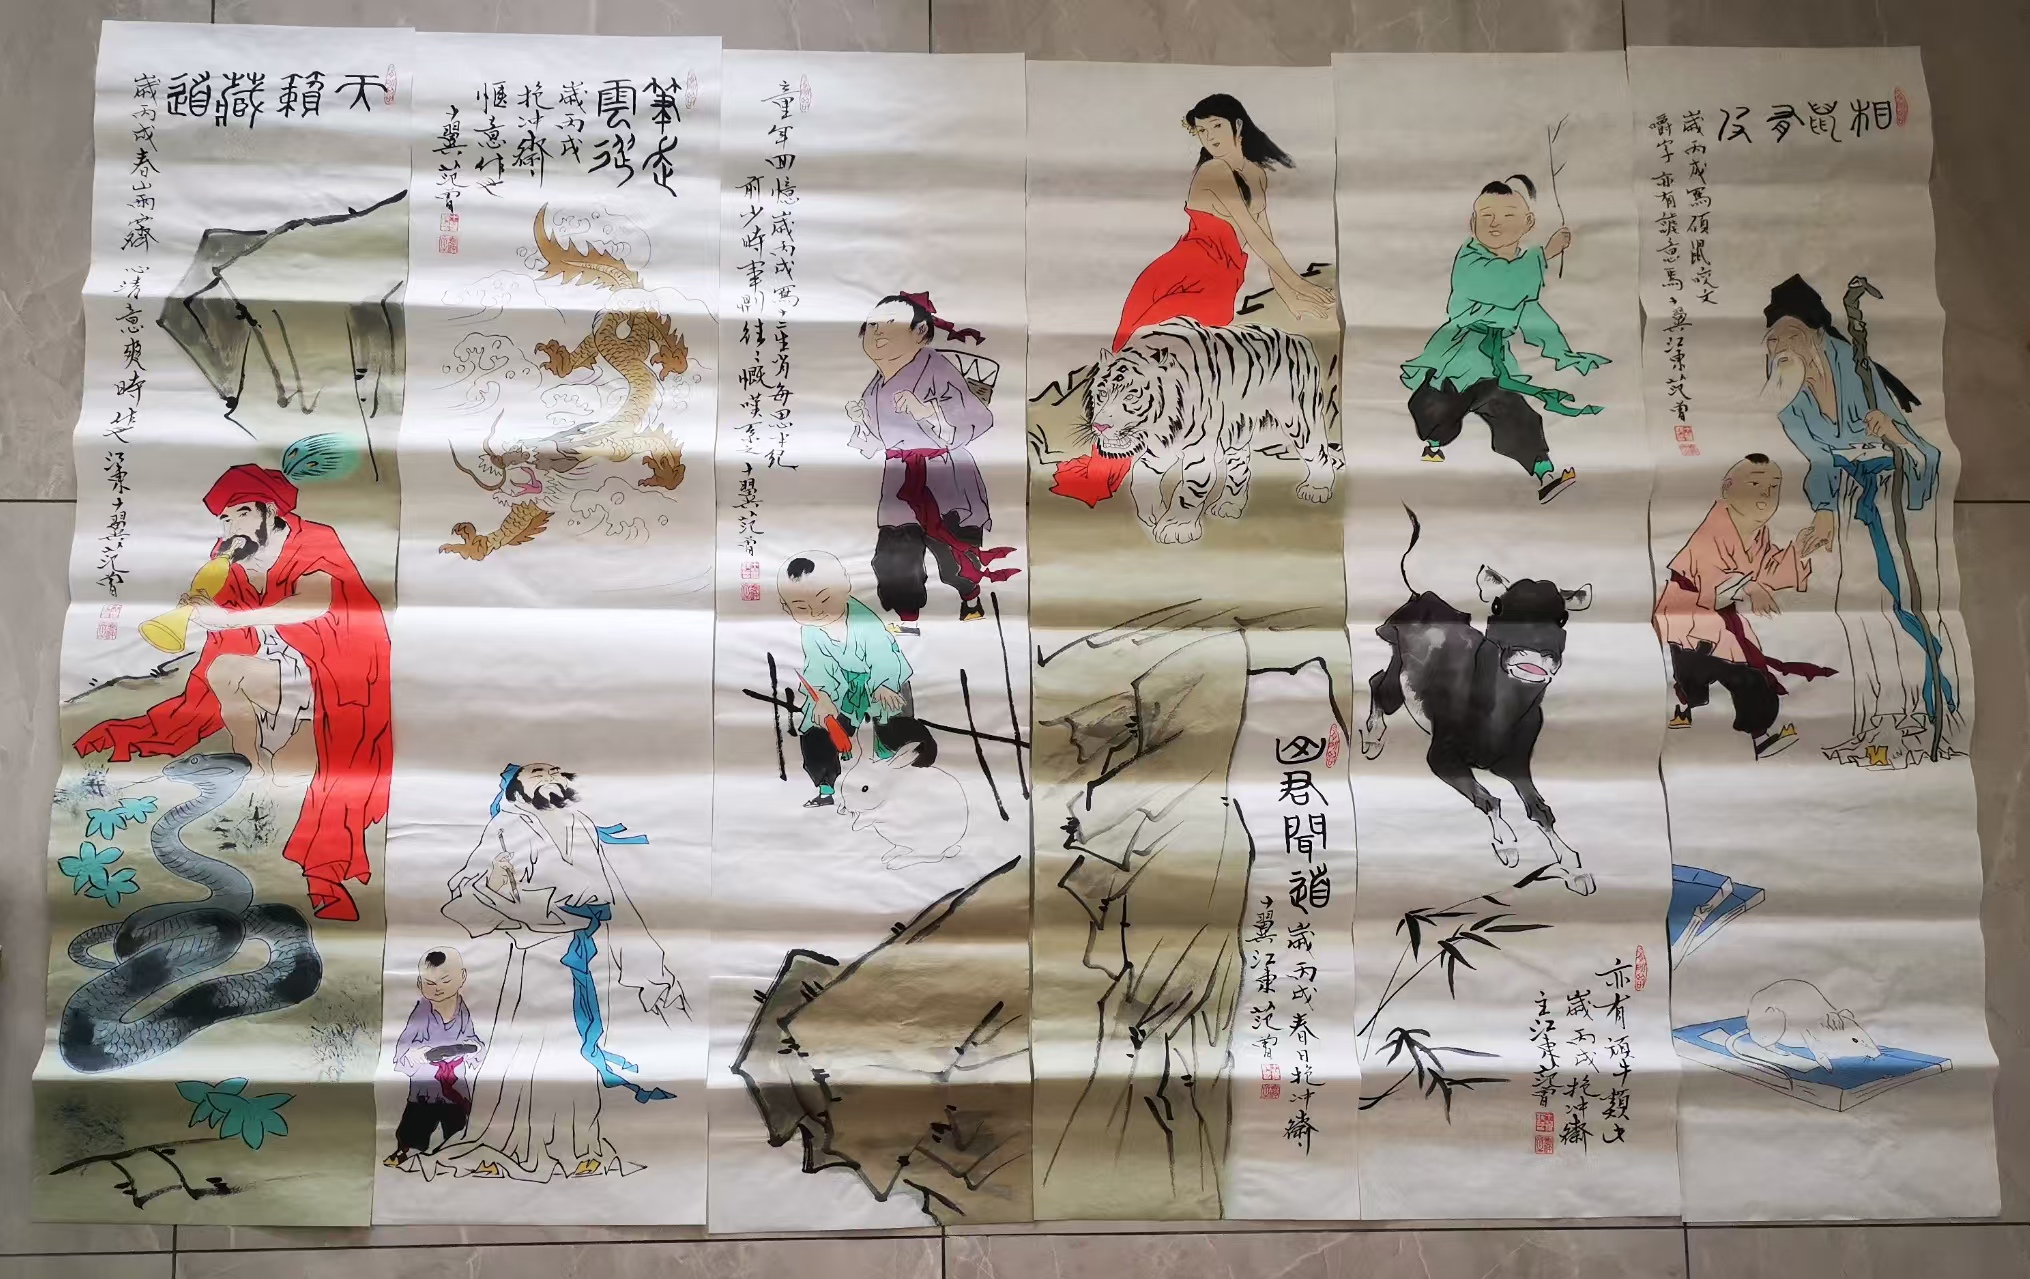 相鼠有皮
歲丙戌寫碩鼠咬文
嚼字亦有諧意焉十翼江東范曾
亦有頑牛類此
歲丙戌抱冲齋
主江東范曾
山君聞道歲丙戌春日抱冲齋
十翼江東范曾
童年回憶歲丙戌寫十二生肖每思半紀
前少時事則往往慨嘆系之十翼范曾
筆走
雲
歲丙戌
抱冲齋
愜意作也
十翼范曾
天籟藏道
歲丙戌春山雨霽心清意爽時作也江東十翼范曾